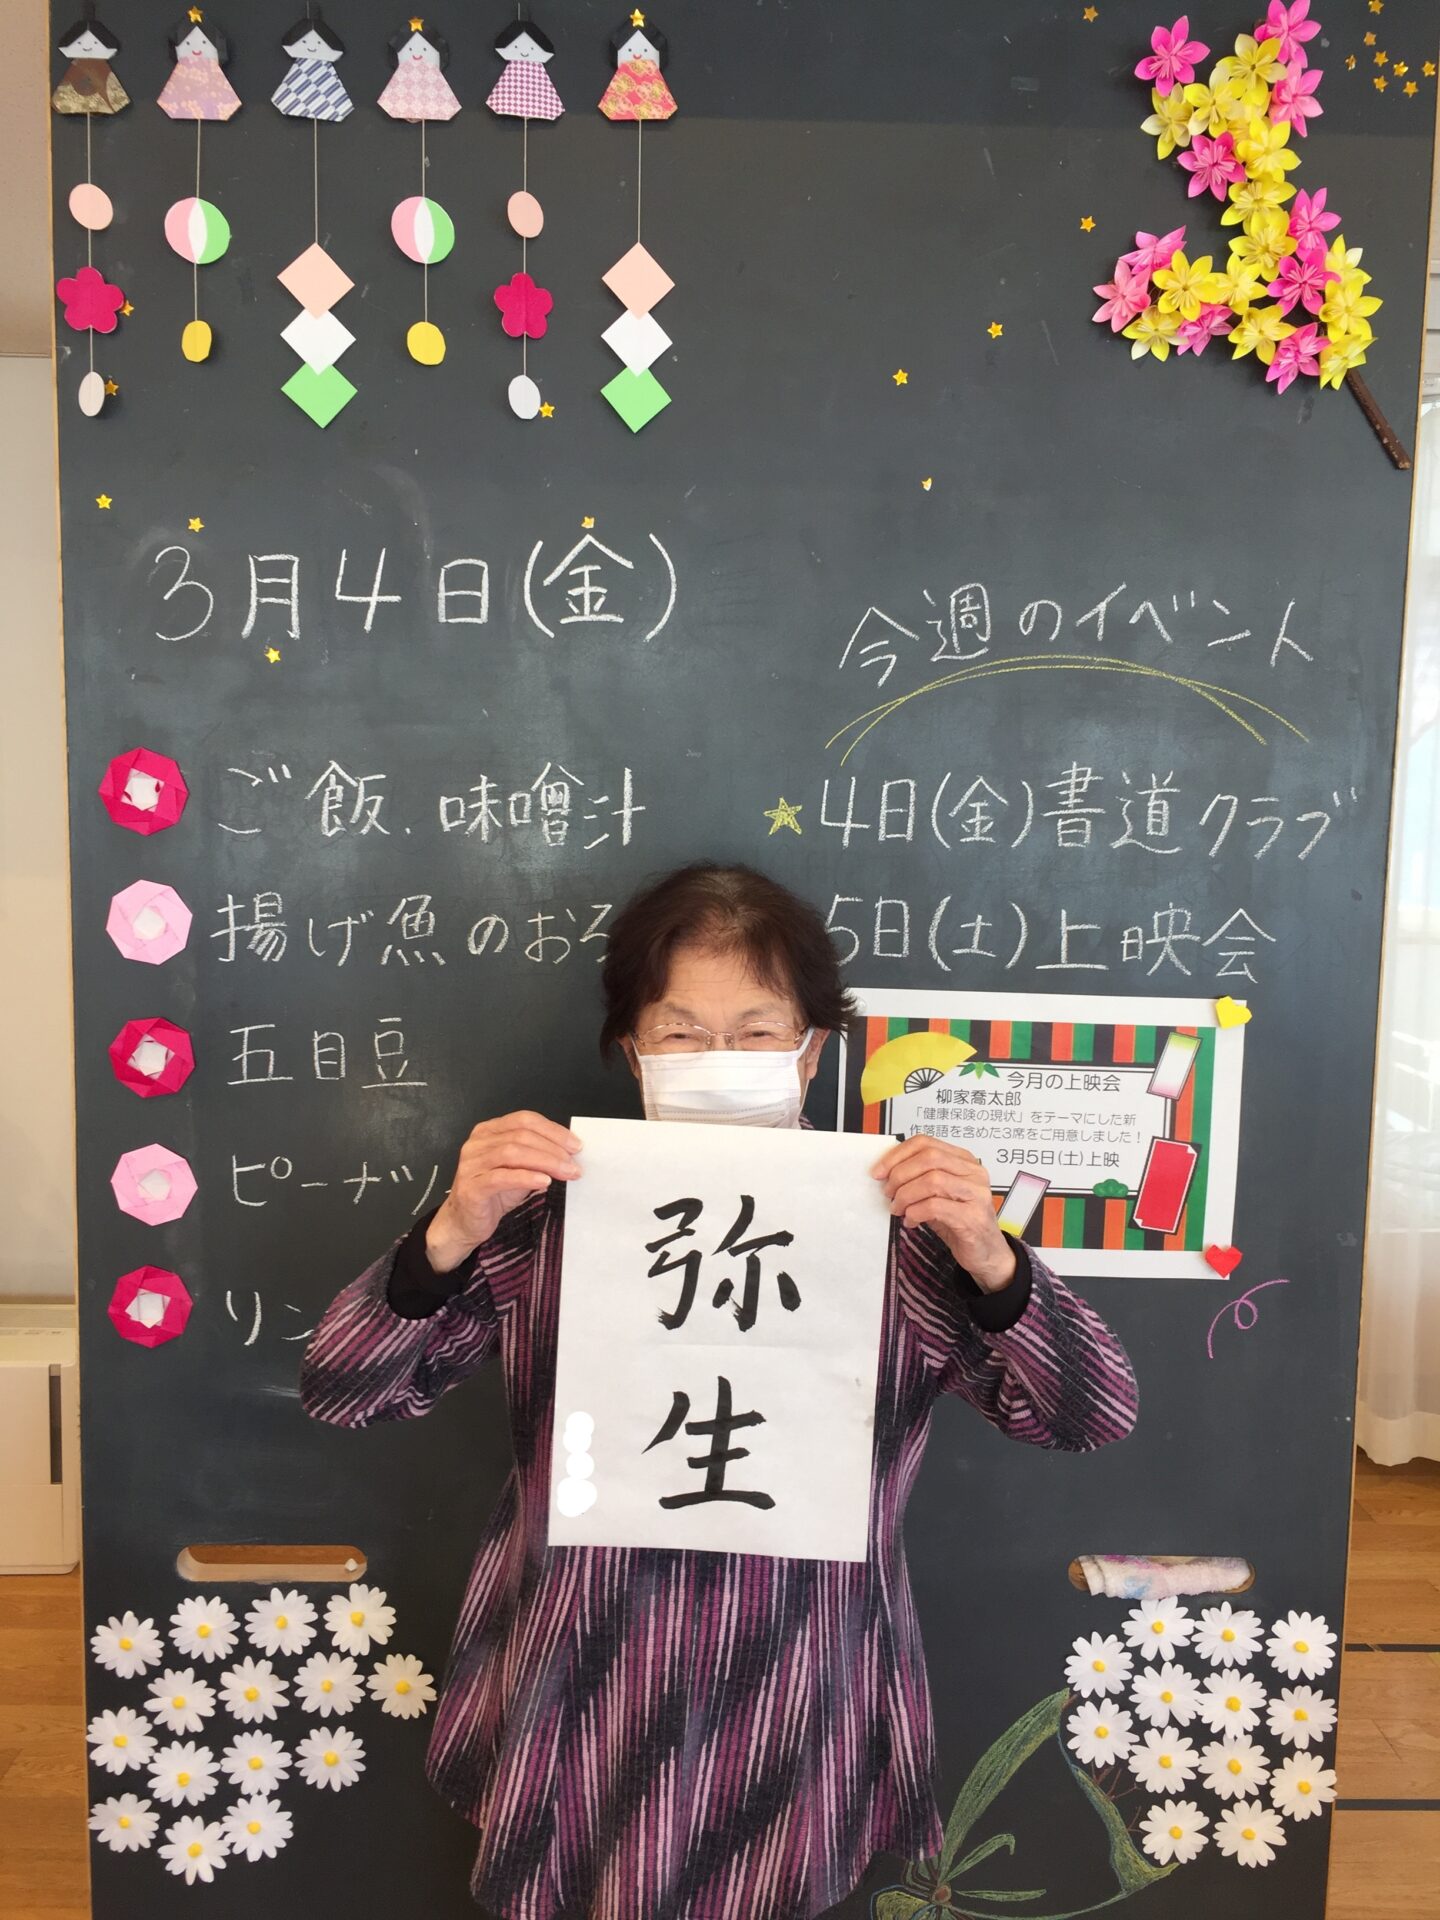 3月4日(金)
ご飯.味噌汁
揚げ魚のおろ
五目豆
ピーナツ
リン
今週のイベント
4日(金)書道クラブ
5日(土)上映会
今月の上映会
柳家喬太郎
「健康保険の現状」をテーマにした新
作落語を含めた3席をご用意しました！
3月5日(土)上映
弥生